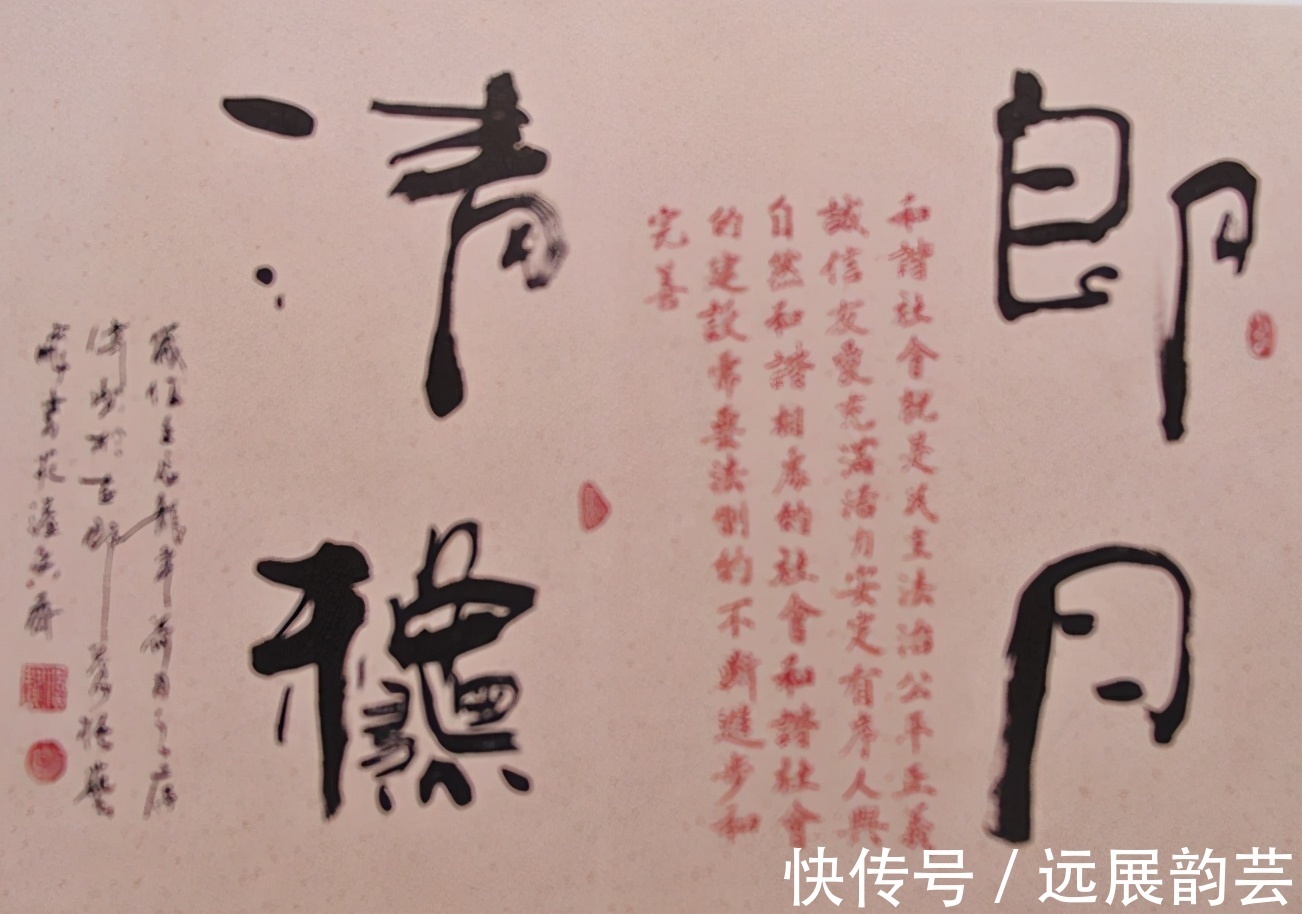 朗月
和諧社會就是民主法治公平正義
誠信友愛充滿活力安定有序人與
自然和諧相處的社會和諧社會
的建設需要法制的不斷進步和
完善
清龝
歲值壬辰龍年荷月之
快传号 / 远展韵芸